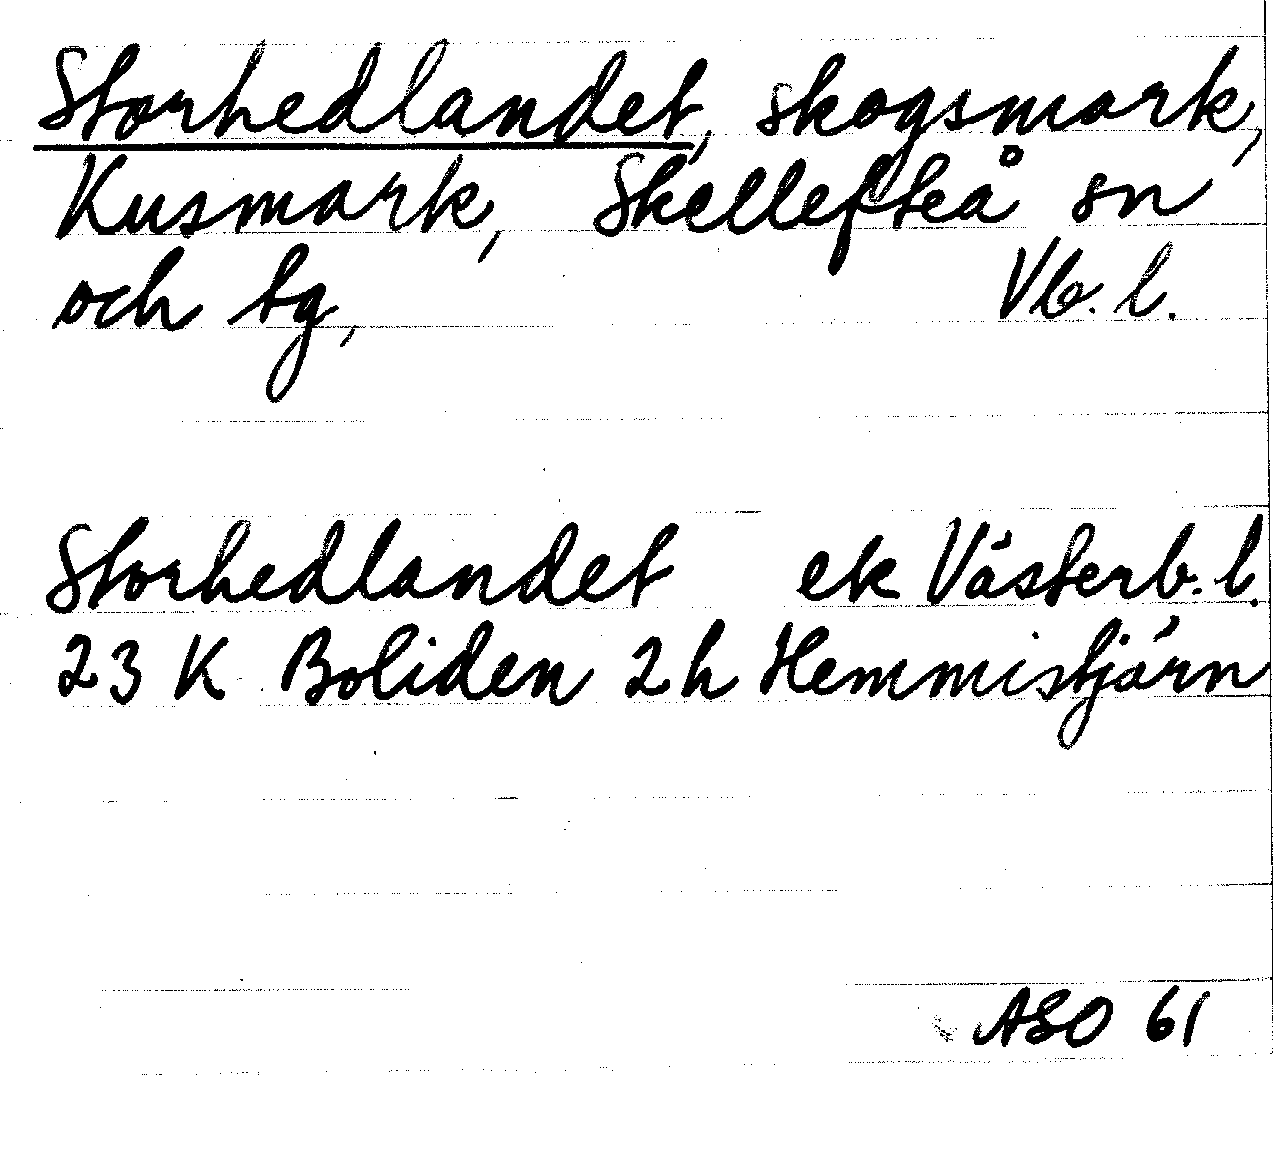 Storhedlandet, skogsmark,
Kusmark, Skellefteå sn
och tg, Vb. l.
Storhedlandet ek Västerb. l.
23 K Boliden 2 h Hemmistjärn
ASO 61